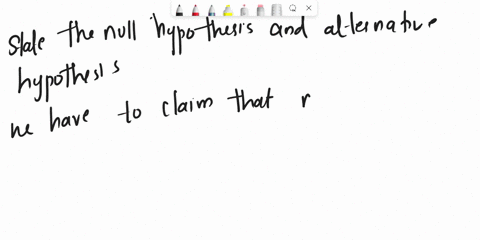 State the null hypothesis and alternative
hypothesis
we have to claim that r